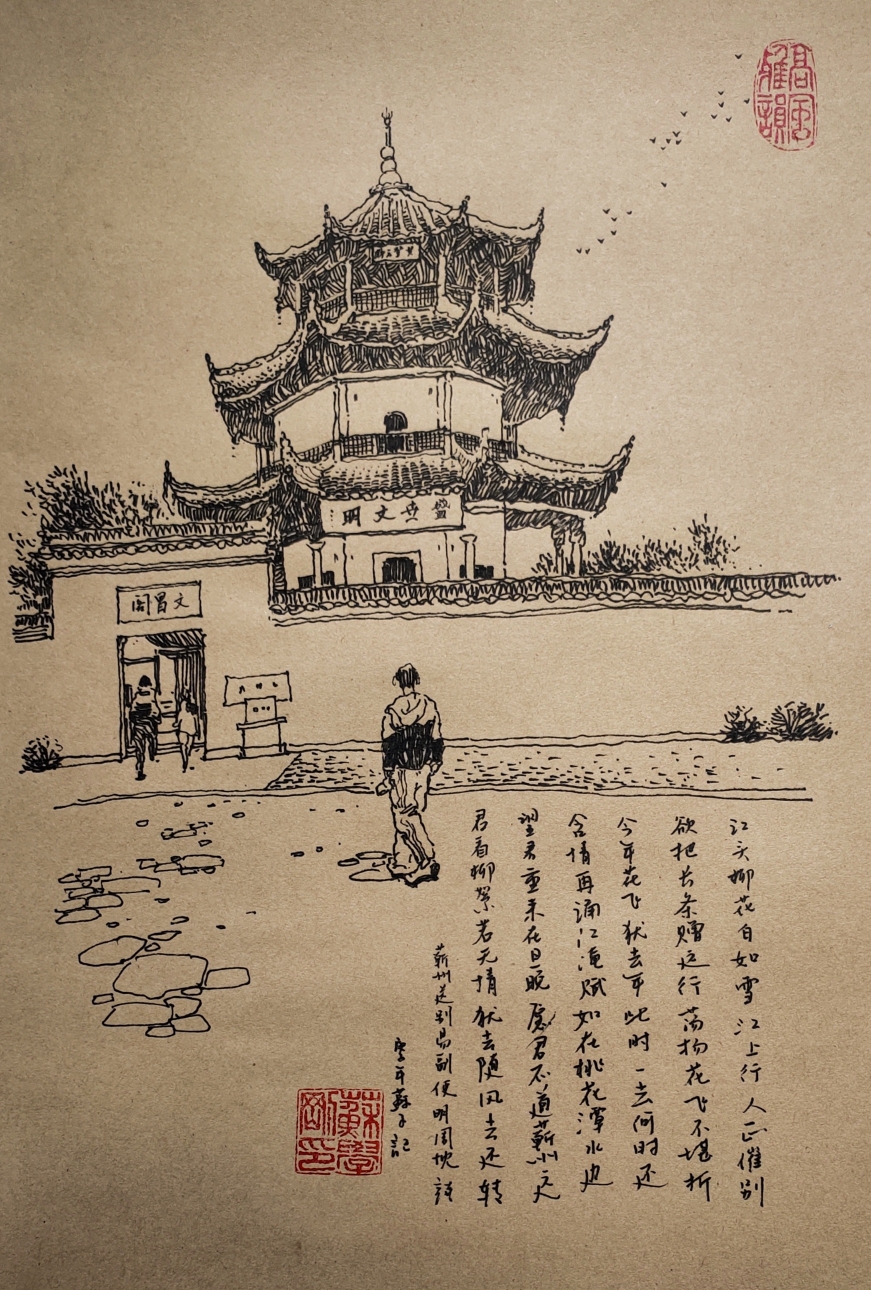 高風
雅韻
盛世文明
文昌阁
江头柳花白如雪江上行人正催别
欲把长条赠远行荡扬花飞不堪折
今年花飞犹去年此时一去何时还
含情再诵江淹赋如在桃花潭水边
望君重来在旦晚虑君不道蕲州远
君看柳絮若无情犹去随风去还转
蕲州送别易副使明周忱诗